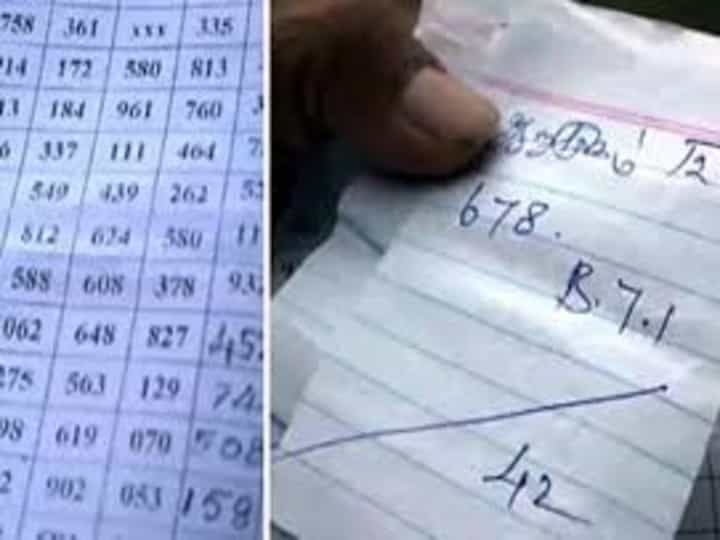 758 361 xxx 335
914 172 580 813
13 184 961 760
6 337 111 464
549 439 262
812 624 580 11
588 608 378 932
062 648 827 452
275 563 129 74
98 619 070 508
2 902 053 158
678.
B.7.1
42